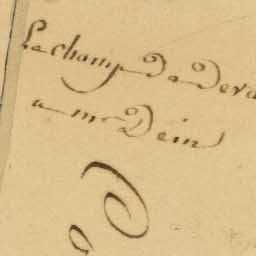 Le champ Da Deva
a mr Dein